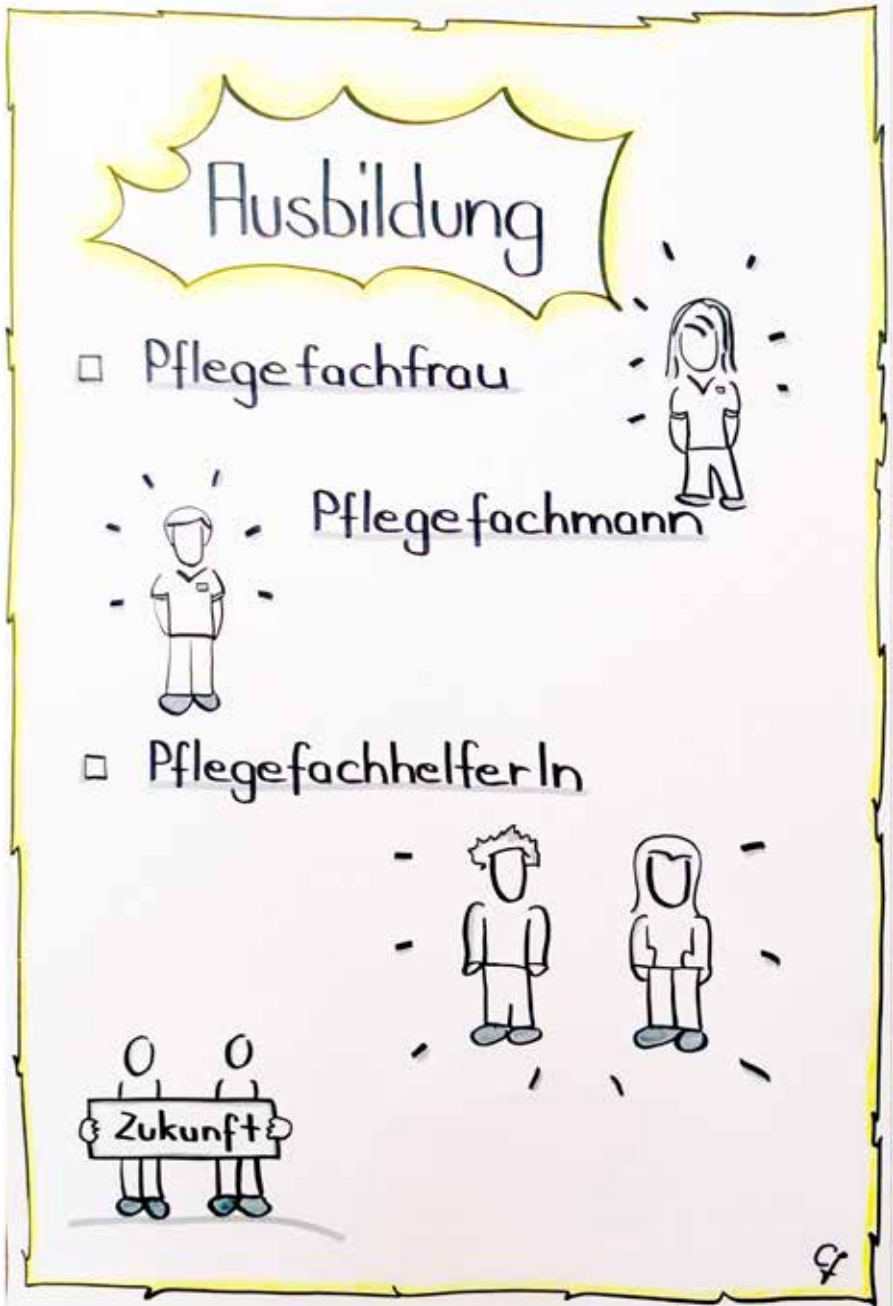 Ausbildung
Pflegefachfrau
Pflegefachmann
PflegefachhelferIn
Zukunft